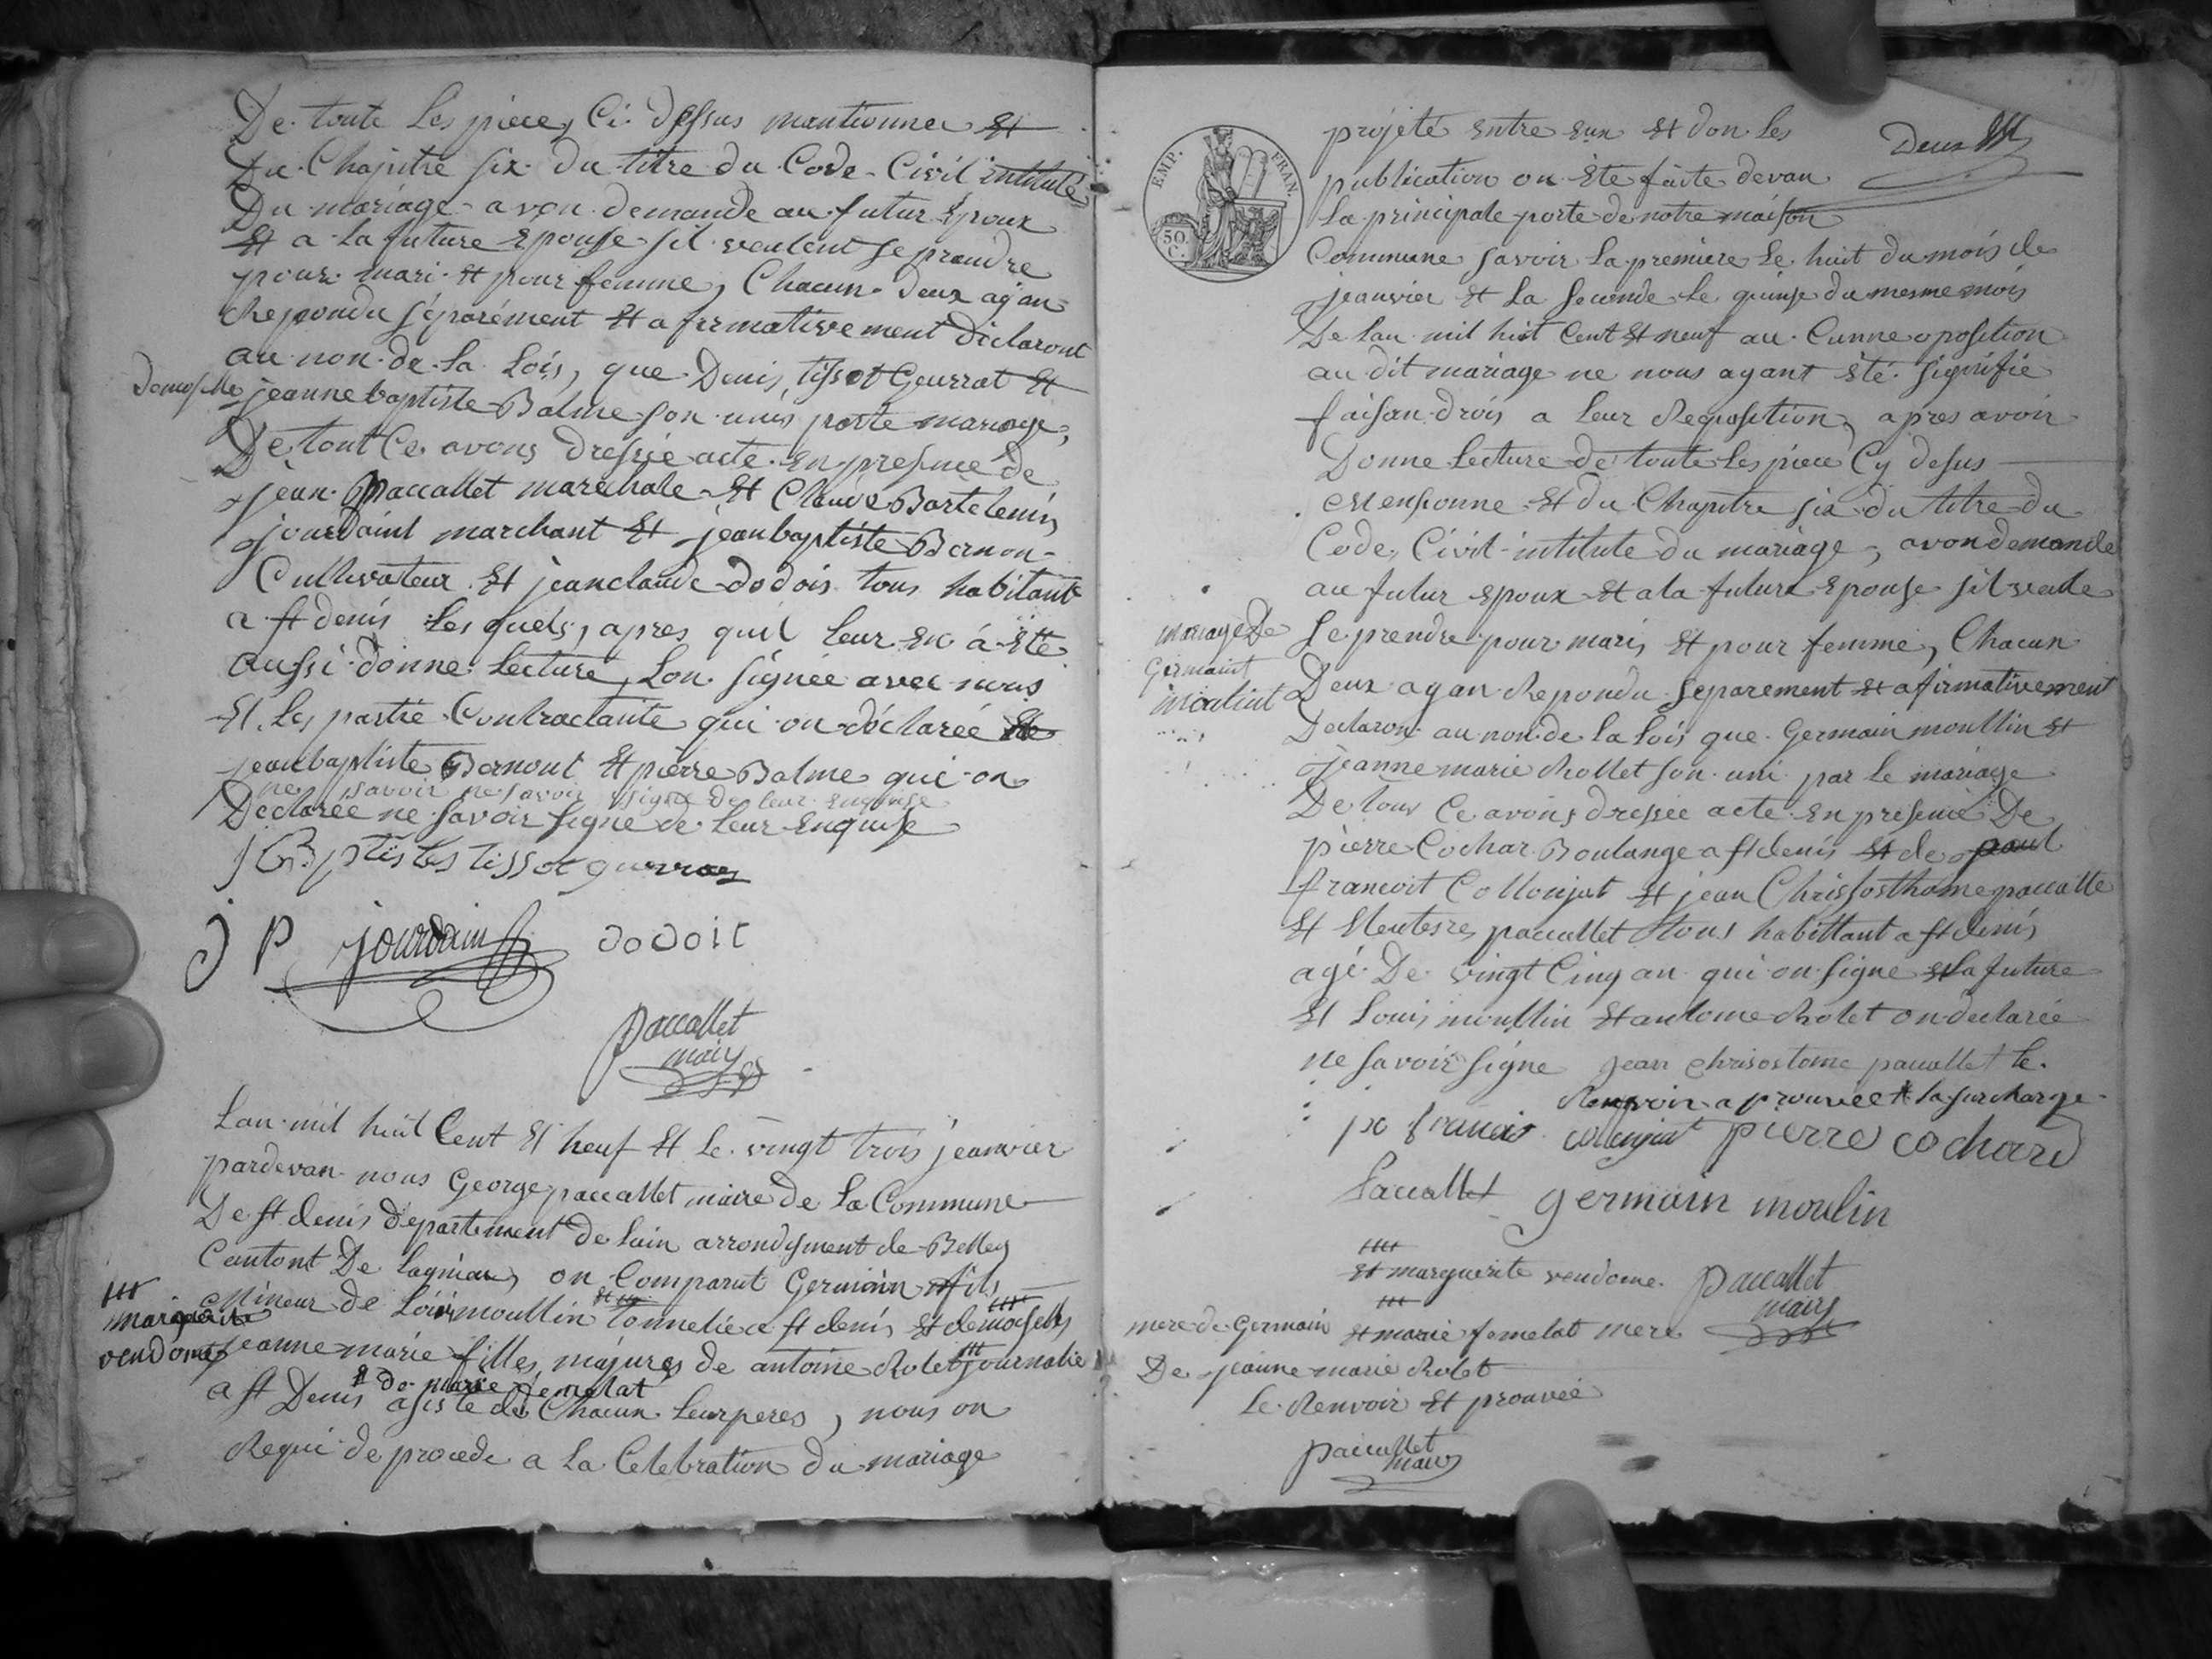 De toute Les piece, Ci. Dessus mentionnee Et
Du Chapitre six du titre du Code Civil intitulé
Du mariage avon demande au futur Epoux
Et a la future Epouse sil veulent se prendre
pour mari Et pour femme, Chacun Deux ayan
Repondu séparément Et afirmativement Déclaront
au non de la Lois, que Denis tissot Geurrat Et
Demoselle jeanne baptiste Balme son unis parle mariage,
De tout Ce avons Dressée acte En presence de
jean Paccallet marechale Et Claude Bartelemis
jourdaint marchant Et jean baptiste Bernon
Cultivateur Et jean claude dodois tous habitant
a st denis Les quels, apres quil leur En a Ette
aussi donne Lecture, Lon Signée avec nous
Et Les partie Contractante qui on déclarée
jean baptiste Bernont Et pierre Balme qui on
ne savoir ne savoir signe de leur Enquise
Declaree ne savoir signe de Leur Enquise
J Bptistes tissot guerras
J P jourdain dodoit
paccallet
maire
Lan mil huit Cent Et neuf Et le vingt trois jeanvier
pardevan nous George paccallet maire de la Commune
De st denis departement de lain arrondisment de Belley
Cantont De Lagnieu, on Comparut Germain fils
Mineur de Louis moullin tonnelié a st denis Et demoselle
marguerite
vendome
jeanne marie filles majures de antoine Rolet journalié
Et de marie femelat
a st Denis asiste de Chacun Leur peres, nous on
Requi de procede a la Celebration du mariage
Deux
EMP. FRAN.
50.
C.
projeté Entre Eux Et don les
publication on Ete faite devan
la principale porte de notre maison
Commune savoir la premiere le huit du mois de
jeanvier Et la seconde le quinse du mesme mois
De Lan mil huit Cent Et neuf au Cunne oposition
au dit mariage ne nous ayant Eté signifié
faisan drois a leur Requisition, apres avoir
Donne lecture de toute les piece Cy desus
mensionne Et du Chapitre six du titre du
Code Civil intitule du mariage, avon demande
au futur Epoux Et a la future Epouse sil veule
mariage De
Germaint
moulint
Se prendre pour maris Et pour femme, Chacun
Deux ayan Repondu Separement Et afirmativement
Declaron au non de la Lois que Germain moullin Et
jeanne marie Rollet son uni par le mariage
De tous Ce avons dressée acte En presence De
pierre Cochar Boulange a st denis Et de paul
francoit Collonjat Et jean Chrisosthome paccalle
Et paccallet tous habittant a st denis
agé De vingt Cinq an qui on signe Et la future
Et Louis moullin Et antome Rolet on declarée
ne savoir signe jean chrisostome paccallet le
Renvoir aprouvee Et la surcharge
francois collonjat pierre cochard
Paccallet germain moulin
Et marguerite vendome. paccallet
maire
mere de Germain Et marie femelat mere
De jeanne marie Rolet
Le Renvoir Et prouvée
paccallet
maire